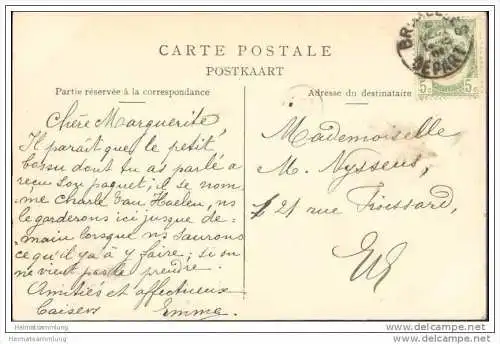 CARTE POSTALE
POSTKAART
Partie réservée à la correspondance
Adresse du destinataire
DEPART
5c 5c
Chère Marguerite,
Il paraît que le petit
bossu dont tu as parlé a
reçu son paquet; il se nom-
me Charle Van Haelen, ns
le garderons ici jusque de-
main lorsque ns saurons
ce qu'il y a à y faire; si on
ne vient pas le prendre.
Amitiés et affectueux
baisers Emma.
Mademoiselle
M. Nyssens,
21 rue Froissard,
E/V
Heimatsammlung
Heimatsammlung